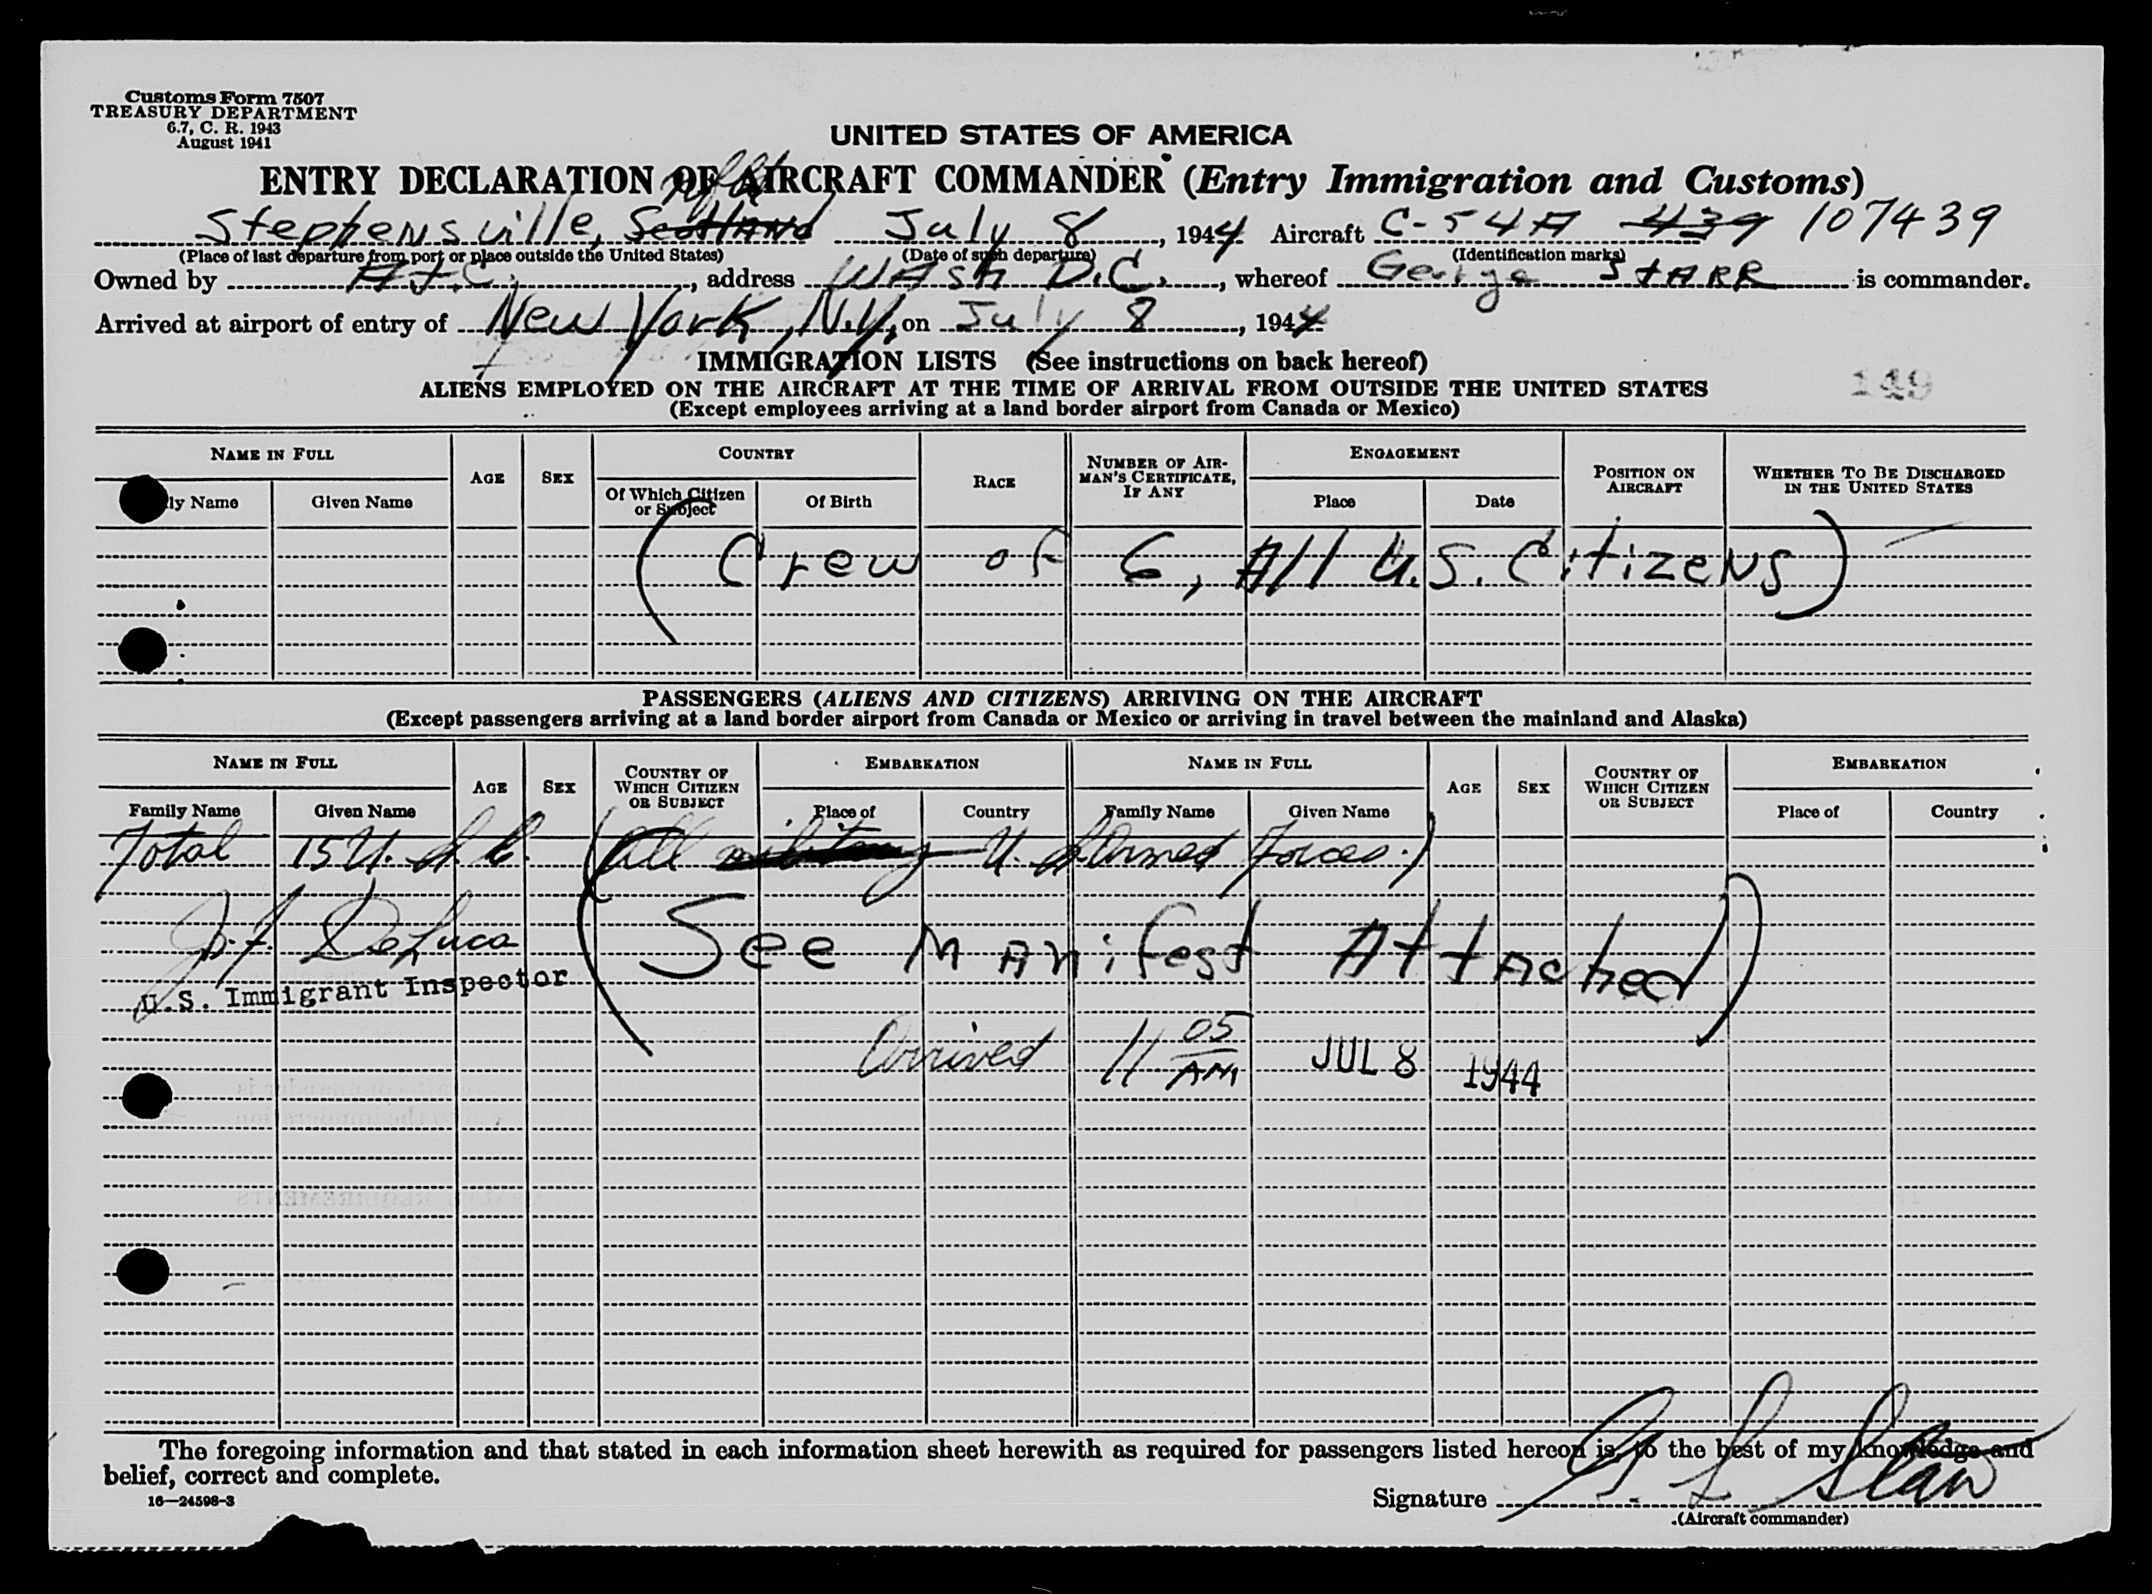 Customs Form 7507
TREASURY DEPARTMENT
6.7, C. R. 1943
August 1941
UNITED STATES OF AMERICA
ENTRY DECLARATION OF AIRCRAFT COMMANDER (Entry Immigration and Customs)
Nfld
Stephensville, Scotland July 8, 1944 Aircraft C-54A 439 107439
(Place of last departure from port or place outside the United States) (Date of such departure) (Identification marks)
Owned by A.T.C., address WAsh D.C., whereof George STARR is commander.
Arrived at airport of entry of New York, N.Y. on July 8, 1944
IMMIGRATION LISTS (See instructions on back hereof)
ALIENS EMPLOYED ON THE AIRCRAFT AT THE TIME OF ARRIVAL FROM OUTSIDE THE UNITED STATES
149
(Except employees arriving at a land border airport from Canada or Mexico)
NAME IN FULL AGE SEX COUNTRY RACE NUMBER OF AIRMAN'S CERTIFICATE, IF ANY ENGAGEMENT POSITION ON AIRCRAFT WHETHER TO BE DISCHARGED IN THE UNITED STATES
ly Name Given Name Of Which Citizen or Subject Of Birth Place Date
(Crew of 6, All U.S. Citizens)
PASSENGERS (ALIENS AND CITIZENS) ARRIVING ON THE AIRCRAFT
(Except passengers arriving at a land border airport from Canada or Mexico or arriving in travel between the mainland and Alaska)
NAME IN FULL AGE SEX COUNTRY OF WHICH CITIZEN OR SUBJECT EMBARKATION NAME IN FULL AGE SEX COUNTRY OF WHICH CITIZEN OR SUBJECT EMBARKATION
Family Name Given Name Place of Country Family Name Given Name Place of Country
Total 15 U.S.C. (All military U.S. Armed Forces.)
J.F. DeLuca (See MANifest AttAched)
U.S. Immigrant Inspector
Arrived 11 05 AM JUL 8 1944
The foregoing information and that stated in each information sheet herewith as required for passengers listed hereon is, to the best of my knowledge and
belief, correct and complete.
16—24598-3
Signature G L Starr
(Aircraft commander)